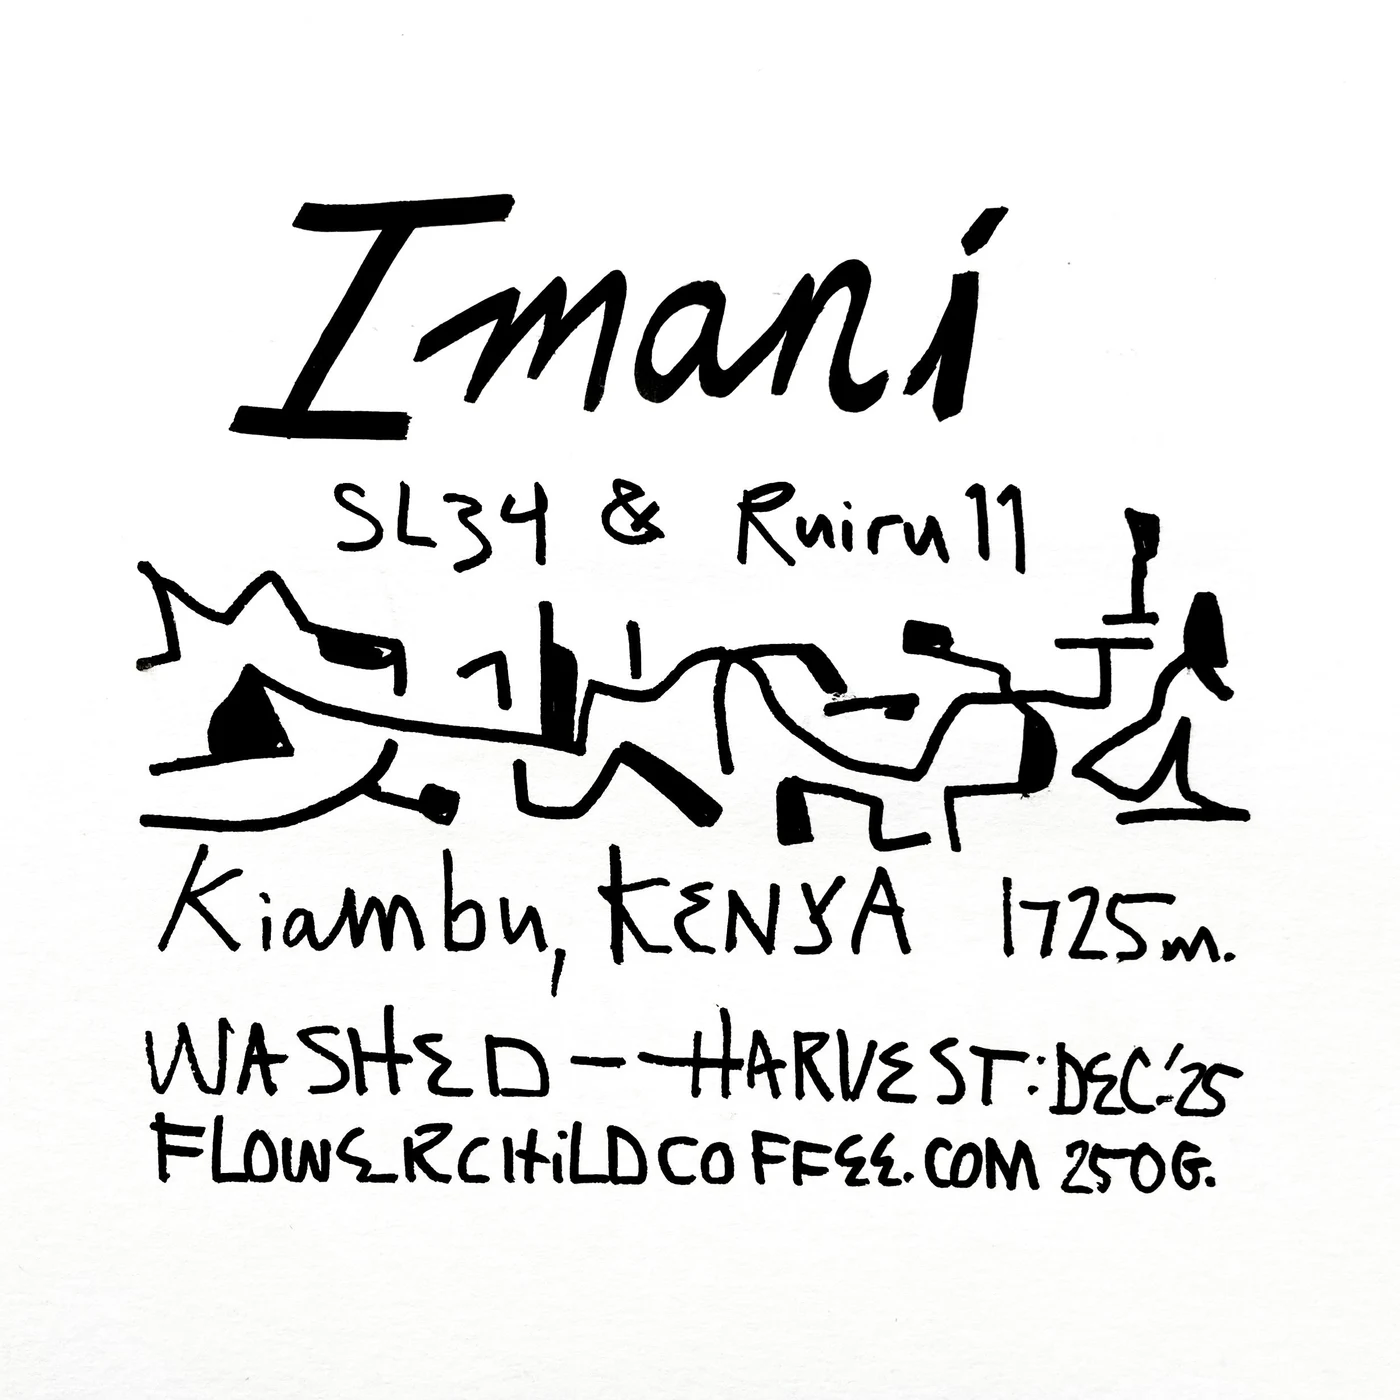 Imani
SL34 & Ruiru 11
Kiambu, KENYA 1725m.
WASHED — HARVEST: DEC.'25
FLOWERCHILDCOFFEE.COM 250G.